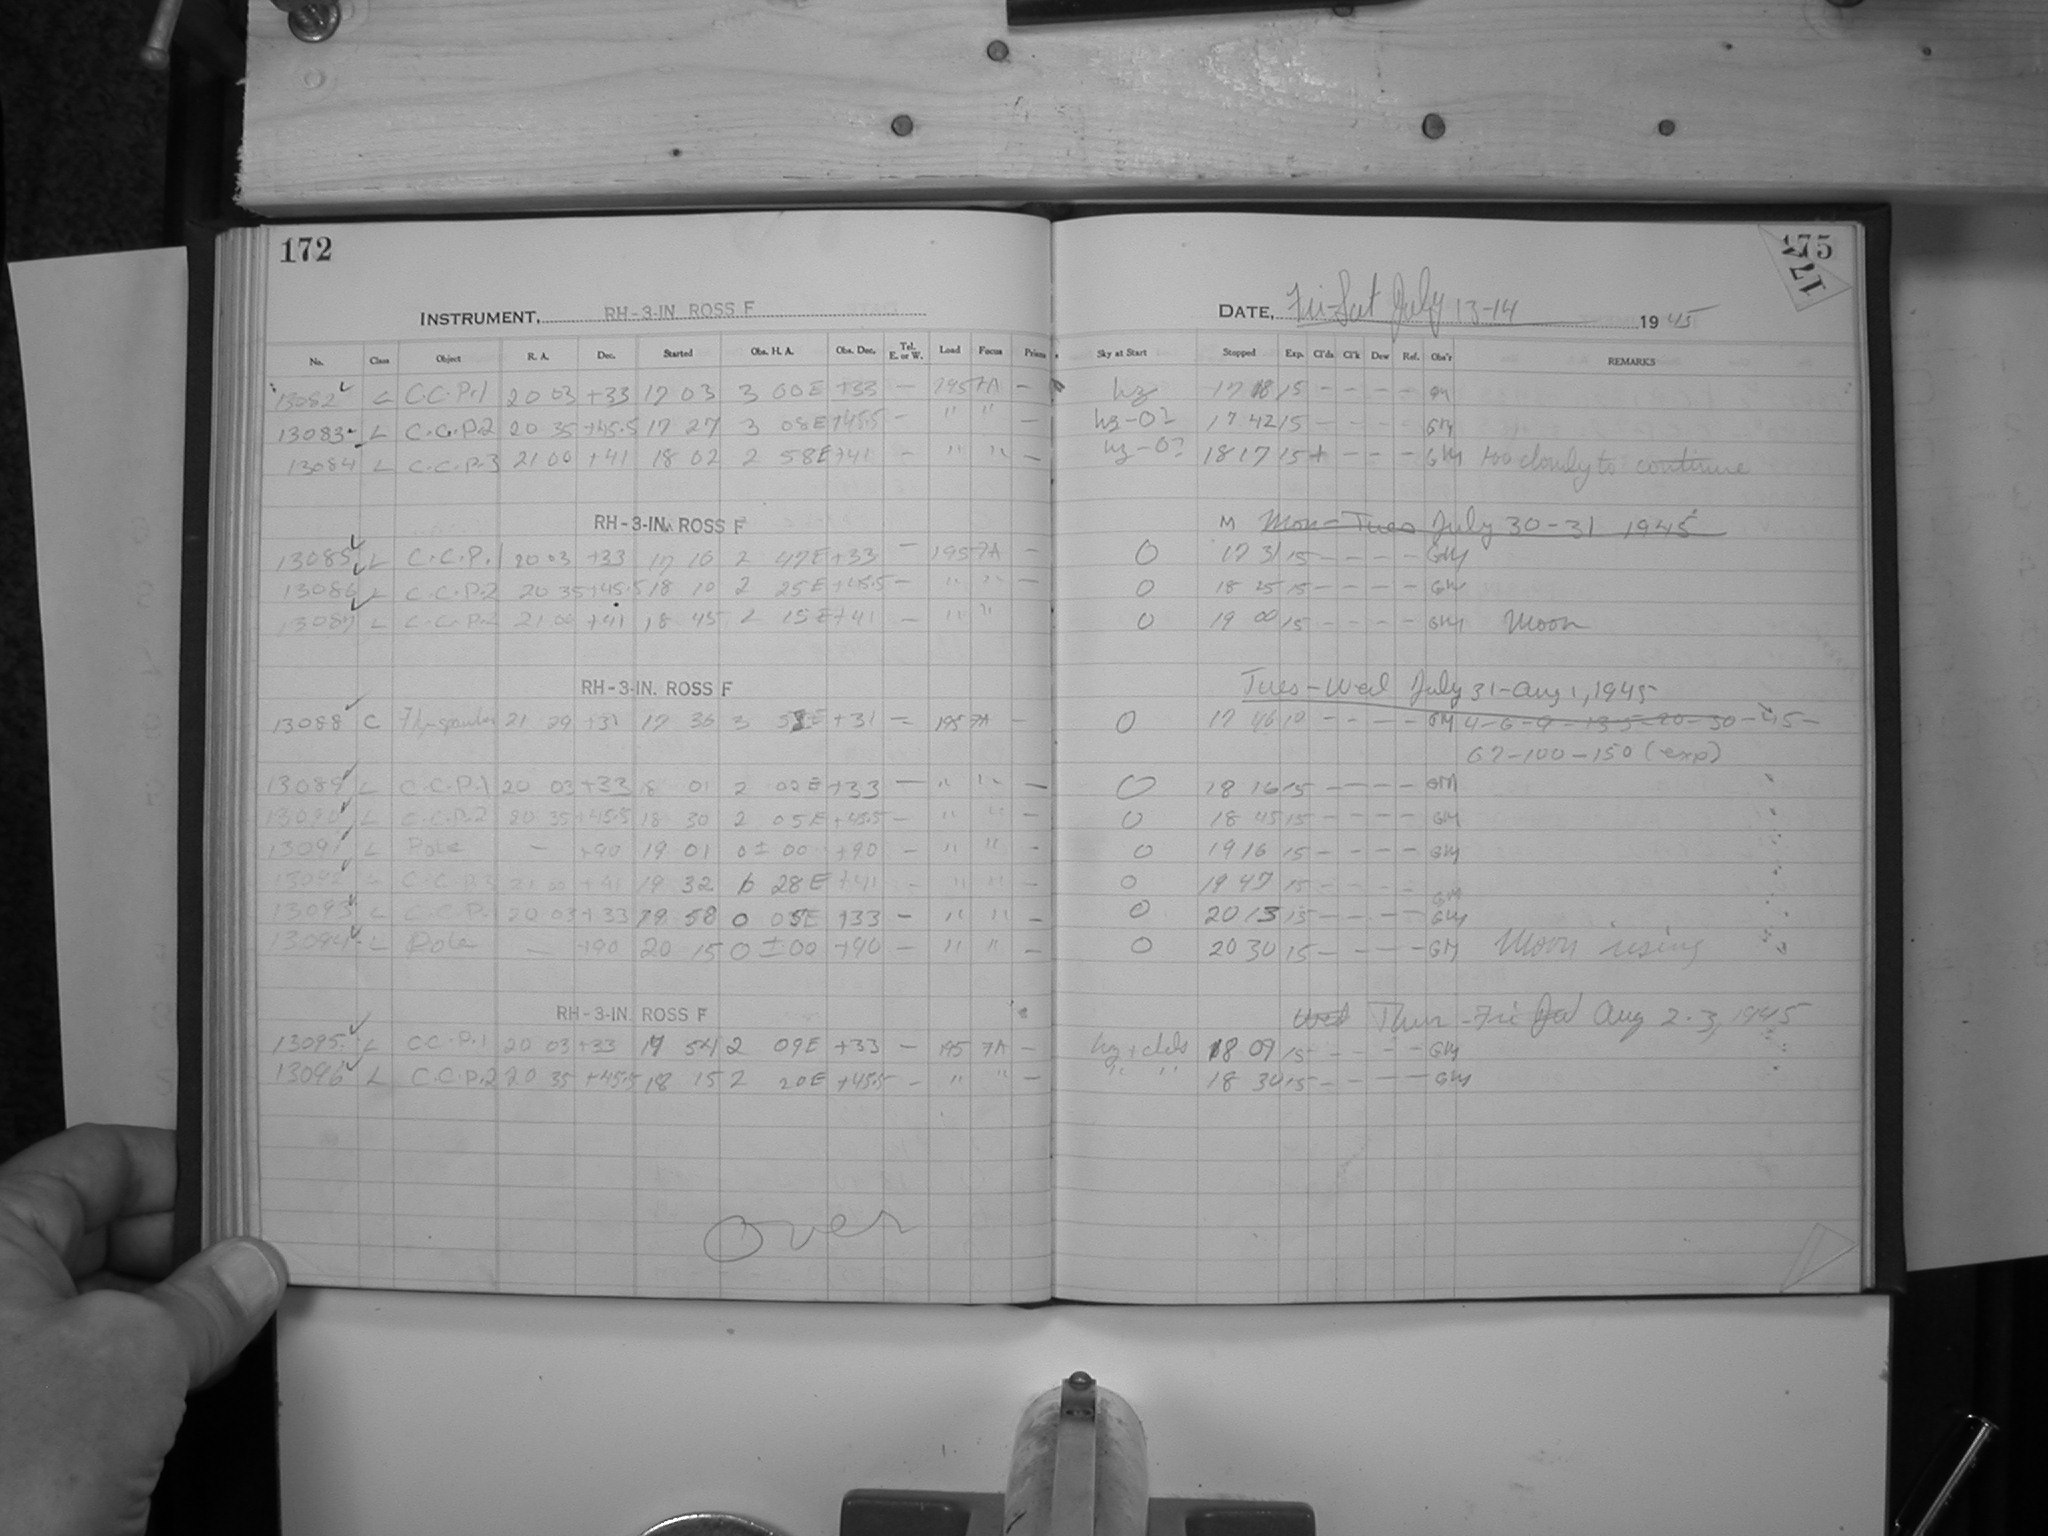 172
175
173
INSTRUMENT, RH-3-IN ROSS F
DATE, Fri-Sat July 13-14 1945
No. Class Object R. A. Dec. Started Obs. H. A. Obs. Dec. Tel. E. or W. Load Focus Prism Sky at Start Stopped Exp. Cl'ds Cl'k Dew Ref. Obs'r REMARKS
13082 L C.C.P.1 20 03 +33 17 03 3 00E +33 — 195 7A — hz 17 18 15 — — — — GM
13083 L C.C.P.2 20 35 +45.5 17 27 3 08E +45.5 — " " — hz-0? 17 42 15 — — — — GM
13084 L C.C.P.3 21 00 +41 18 02 2 58E +41 — " " — hz-0? 18 17 15 + — — — GM too cloudy to continue
RH-3-IN. ROSS F M Mon-Tues July 30-31 1945
13085 L C.C.P.1 20 03 +33 17 16 2 47E +33 — 195 7A — 0 17 31 15 — — — — GM
13086 L C.C.P.2 20 35 +45.5 18 10 2 25E +45.5 — " " — 0 18 25 15 — — — — GM
13087 L C.C.P.3 21 00 +41 18 45 2 15E +41 — " " — 0 19 00 15 — — — — GM Moon
RH-3-IN. ROSS F Tues-Wed July 31-Aug 1, 1945
13088 C 21 29 +31 17 36 3 E +31 — 195 7A — 0 17 46 10 — — — — GM 4-6-9-13.5-20-30-45-
67-100-150 (exp)
13089 L C.C.P.1 20 03 +33 18 01 2 02E +33 — " " — 0 18 16 15 — — — — GM
13090 L C.C.P.2 20 35 +45.5 18 30 2 05E +45.5 — " " — 0 18 45 15 — — — — GM
13091 L Pole — +90 19 01 0 ± 00 +90 — " " — 0 19 16 15 — — — — GM
13092 L C.C.P.3 21 00 +41 19 32 28E +41 — " " — 0 19 47 15 — — — — GM
13093 L C.C.P.1 20 03 +33 19 58 0 05E +33 — " " — 0 20 13 15 — — — — GM
13094 L Pole — +90 20 15 0 ± 00 +90 — " " — 0 20 30 15 — — — — GM Moon rising
RH-3-IN. ROSS F Wed Thur-Fri Aug 2-3, 1945
13095 L C.C.P.1 20 03 +33 17 54 2 09E +33 — 195 7A — hz + clds 18 09 15 — — — — GM
13096 L C.C.P.2 20 35 +45.5 18 15 2 20E +45.5 — " " — " " 18 30 15 — — — — GM
Over